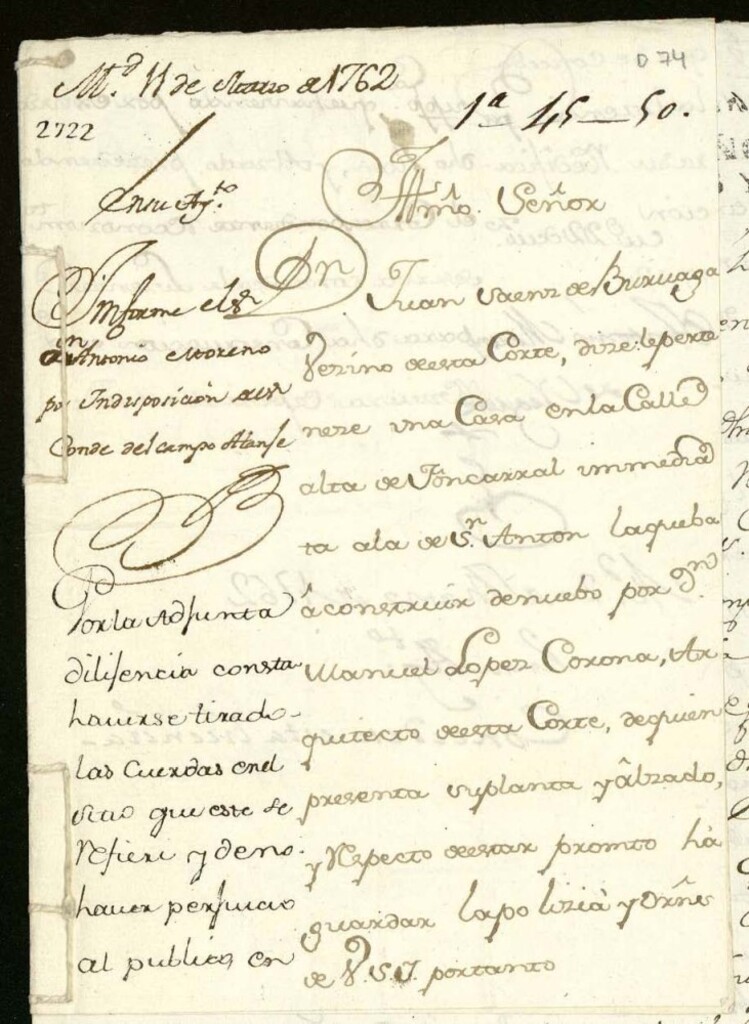 D 74
M.d 11 de Marzo de 1762
1a 45-50.
2722
En su Ay.to
Illmo. Señor
Informe el Sr.
Dn Antonio Moreno
por Indisposicion del Sr
Conde del campo Alanje
Dn Juan Saenz de Buruaga
Vezino de esta Corte, dize: le perte
neze una Casa en la Calle
alta de Foncarral immedia
ta a la de Sn. Anton la que ba
â construir de nuebo por Dn.
Manuel Lopez Corona, Ar
quitecto de esta Corte, de quien
presenta su planta y âlzado,
y Respecto de estar promto hà
guardar la polizià y Ornes
de V.S.I. por tanto
Por la Adjunta
dilijencia consta
haverse tirado
las Cuerdas en el
sitio que este se
refiere y de no
haver perjuicio
al publico, en